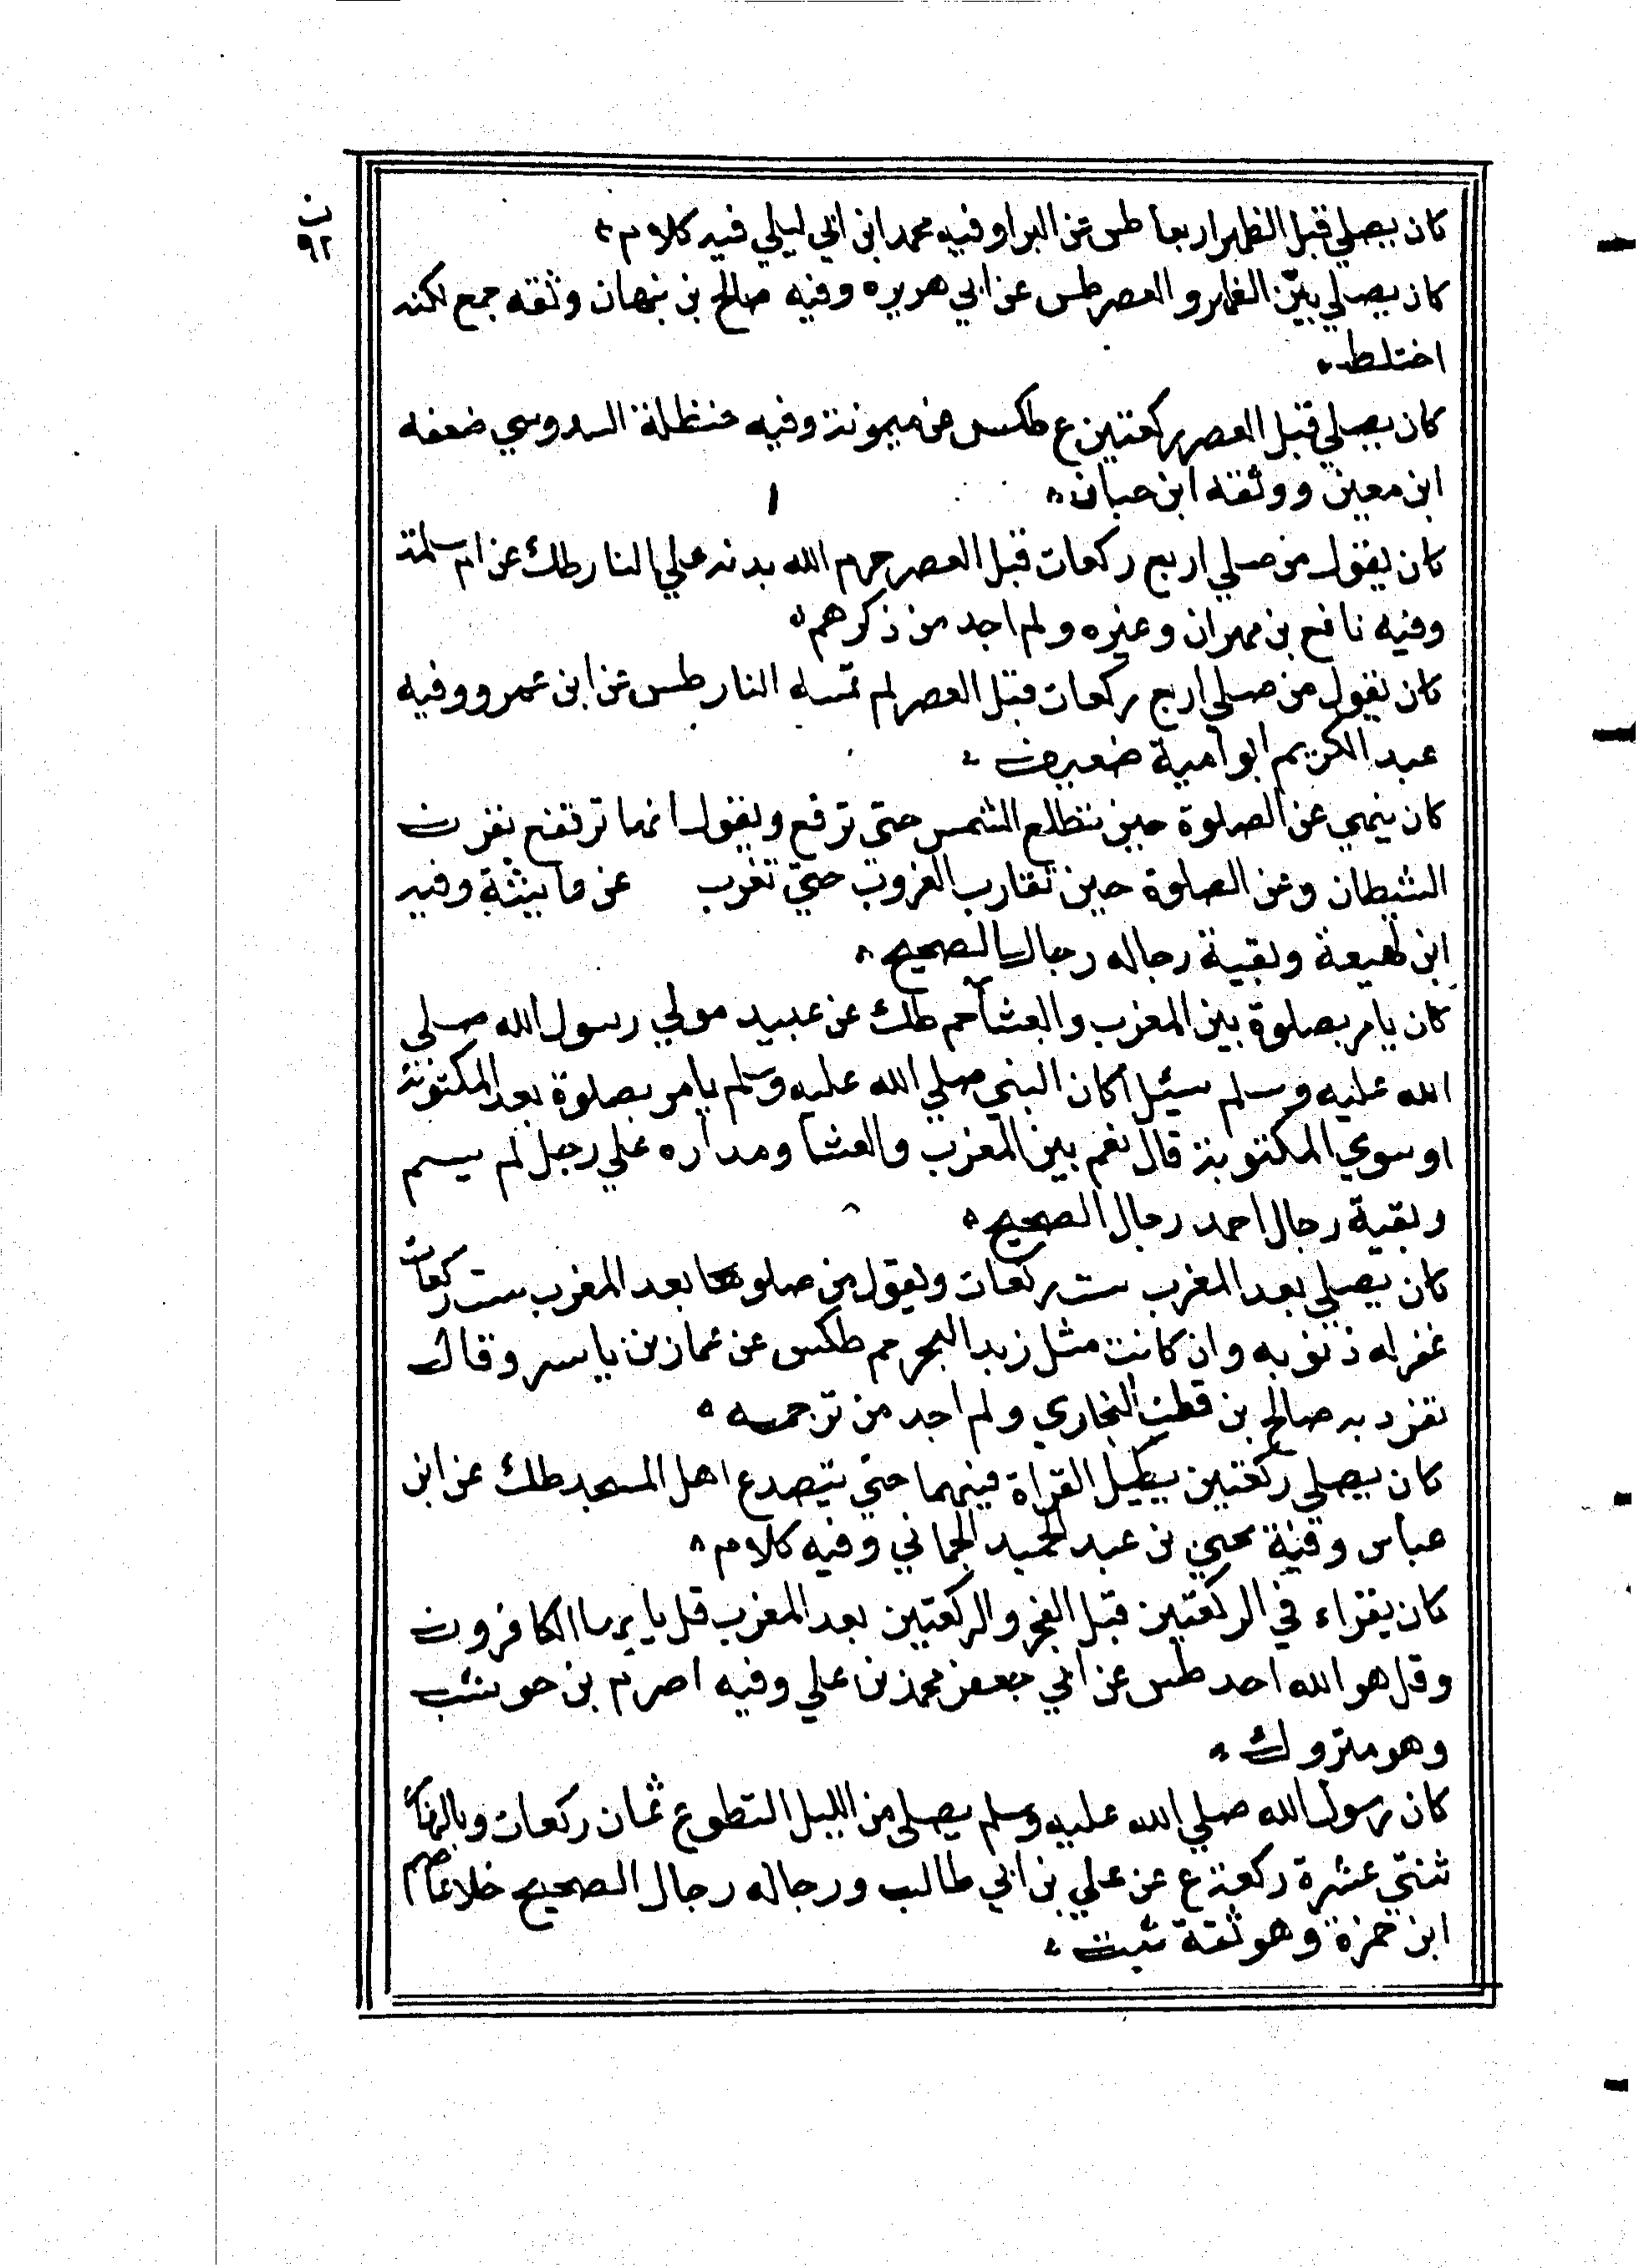 ن
٩٢
كان يصلي قبل الظهر اربعا طس عن البرا وفيه محمد ابن ابي ليلي فيه كلام
كان يصلي بين الظهر و العصر طس عن ابي هريره وفيه صالح بن نبهان وثقه جمع لكنه
اختلط
كان يصلي قبل العصر ركعتين ع طكس عن ميمونة وفيه حنظلة السدوسي ضعفه
ابن معين ووثقه ابن حبان
كان يقول من صلي اربع ركعات قبل العصر حرم الله بدنه علي النار طك عن ام سلمة
وفيه نافع بن مهران وغيره ولم اجد من ذكرهم
كان يقول من صلي اربع ركعات قبل العصر لم تمسه النار طس عن ابن عمرو وفيه
عبد الكريم ابو امية ضعيف
كان ينهي عن الصلوة حين تطلع الشمس حتي ترفع ويقول انها ترتفع بقرن
الشيطان وعن الصلوة حين تقارب الغروب حتي تغرب عن مايشة وفيه
ابن لهيعة وبقية رجاله رجال الصحيح
كان يامر بصلوة بين المغرب والعشآ حم طك عن عبيد مولي رسول الله صلي
الله عليه وسلم سئيل أكان النبي صلي الله عليه وسلم يامر بصلوة بعد المكتوبة
او سوي المكتوبة قال نعم بين المغرب والعشا ومداره علي رجل لم يسم
وبقية رجال احمد رجال الصحيح
كان يصلي بعد المغرب ست ركعات ويقول من صلوها بعد المغرب ست ركعات
غفر له ذنوبه وان كانت مثل زبد البحر مم طكس عن عمار بن ياسر وقال
تفرد به صالح بن قطن البخاري ولم اجد من ترجمه
كان يصلي ركعتين يطيل القراة فيهما حتي يتصدع اهل المسجد طك عن ابن
عباس وفية يحيي بن عبد الحميد الحماني وفيه كلام
كان يقراء في الركعتين قبل الفجر والركعتين بعد المغرب قل يا يها الكافرون
وقل هو الله احد طس عن ابي جعفر محمد بن علي وفيه اصرم بن حوشب
وهو متروك
كان رسول الله صلي الله عليه وسلم يصلي من الليل التطوع ثمان ركعات وبالنهار
ثنتي عشرة ركعة ع عن علي بن ابي طالب ورجاله رجال الصحيح خلا عاصم
ابن حمزة وهو ثقة ثبت